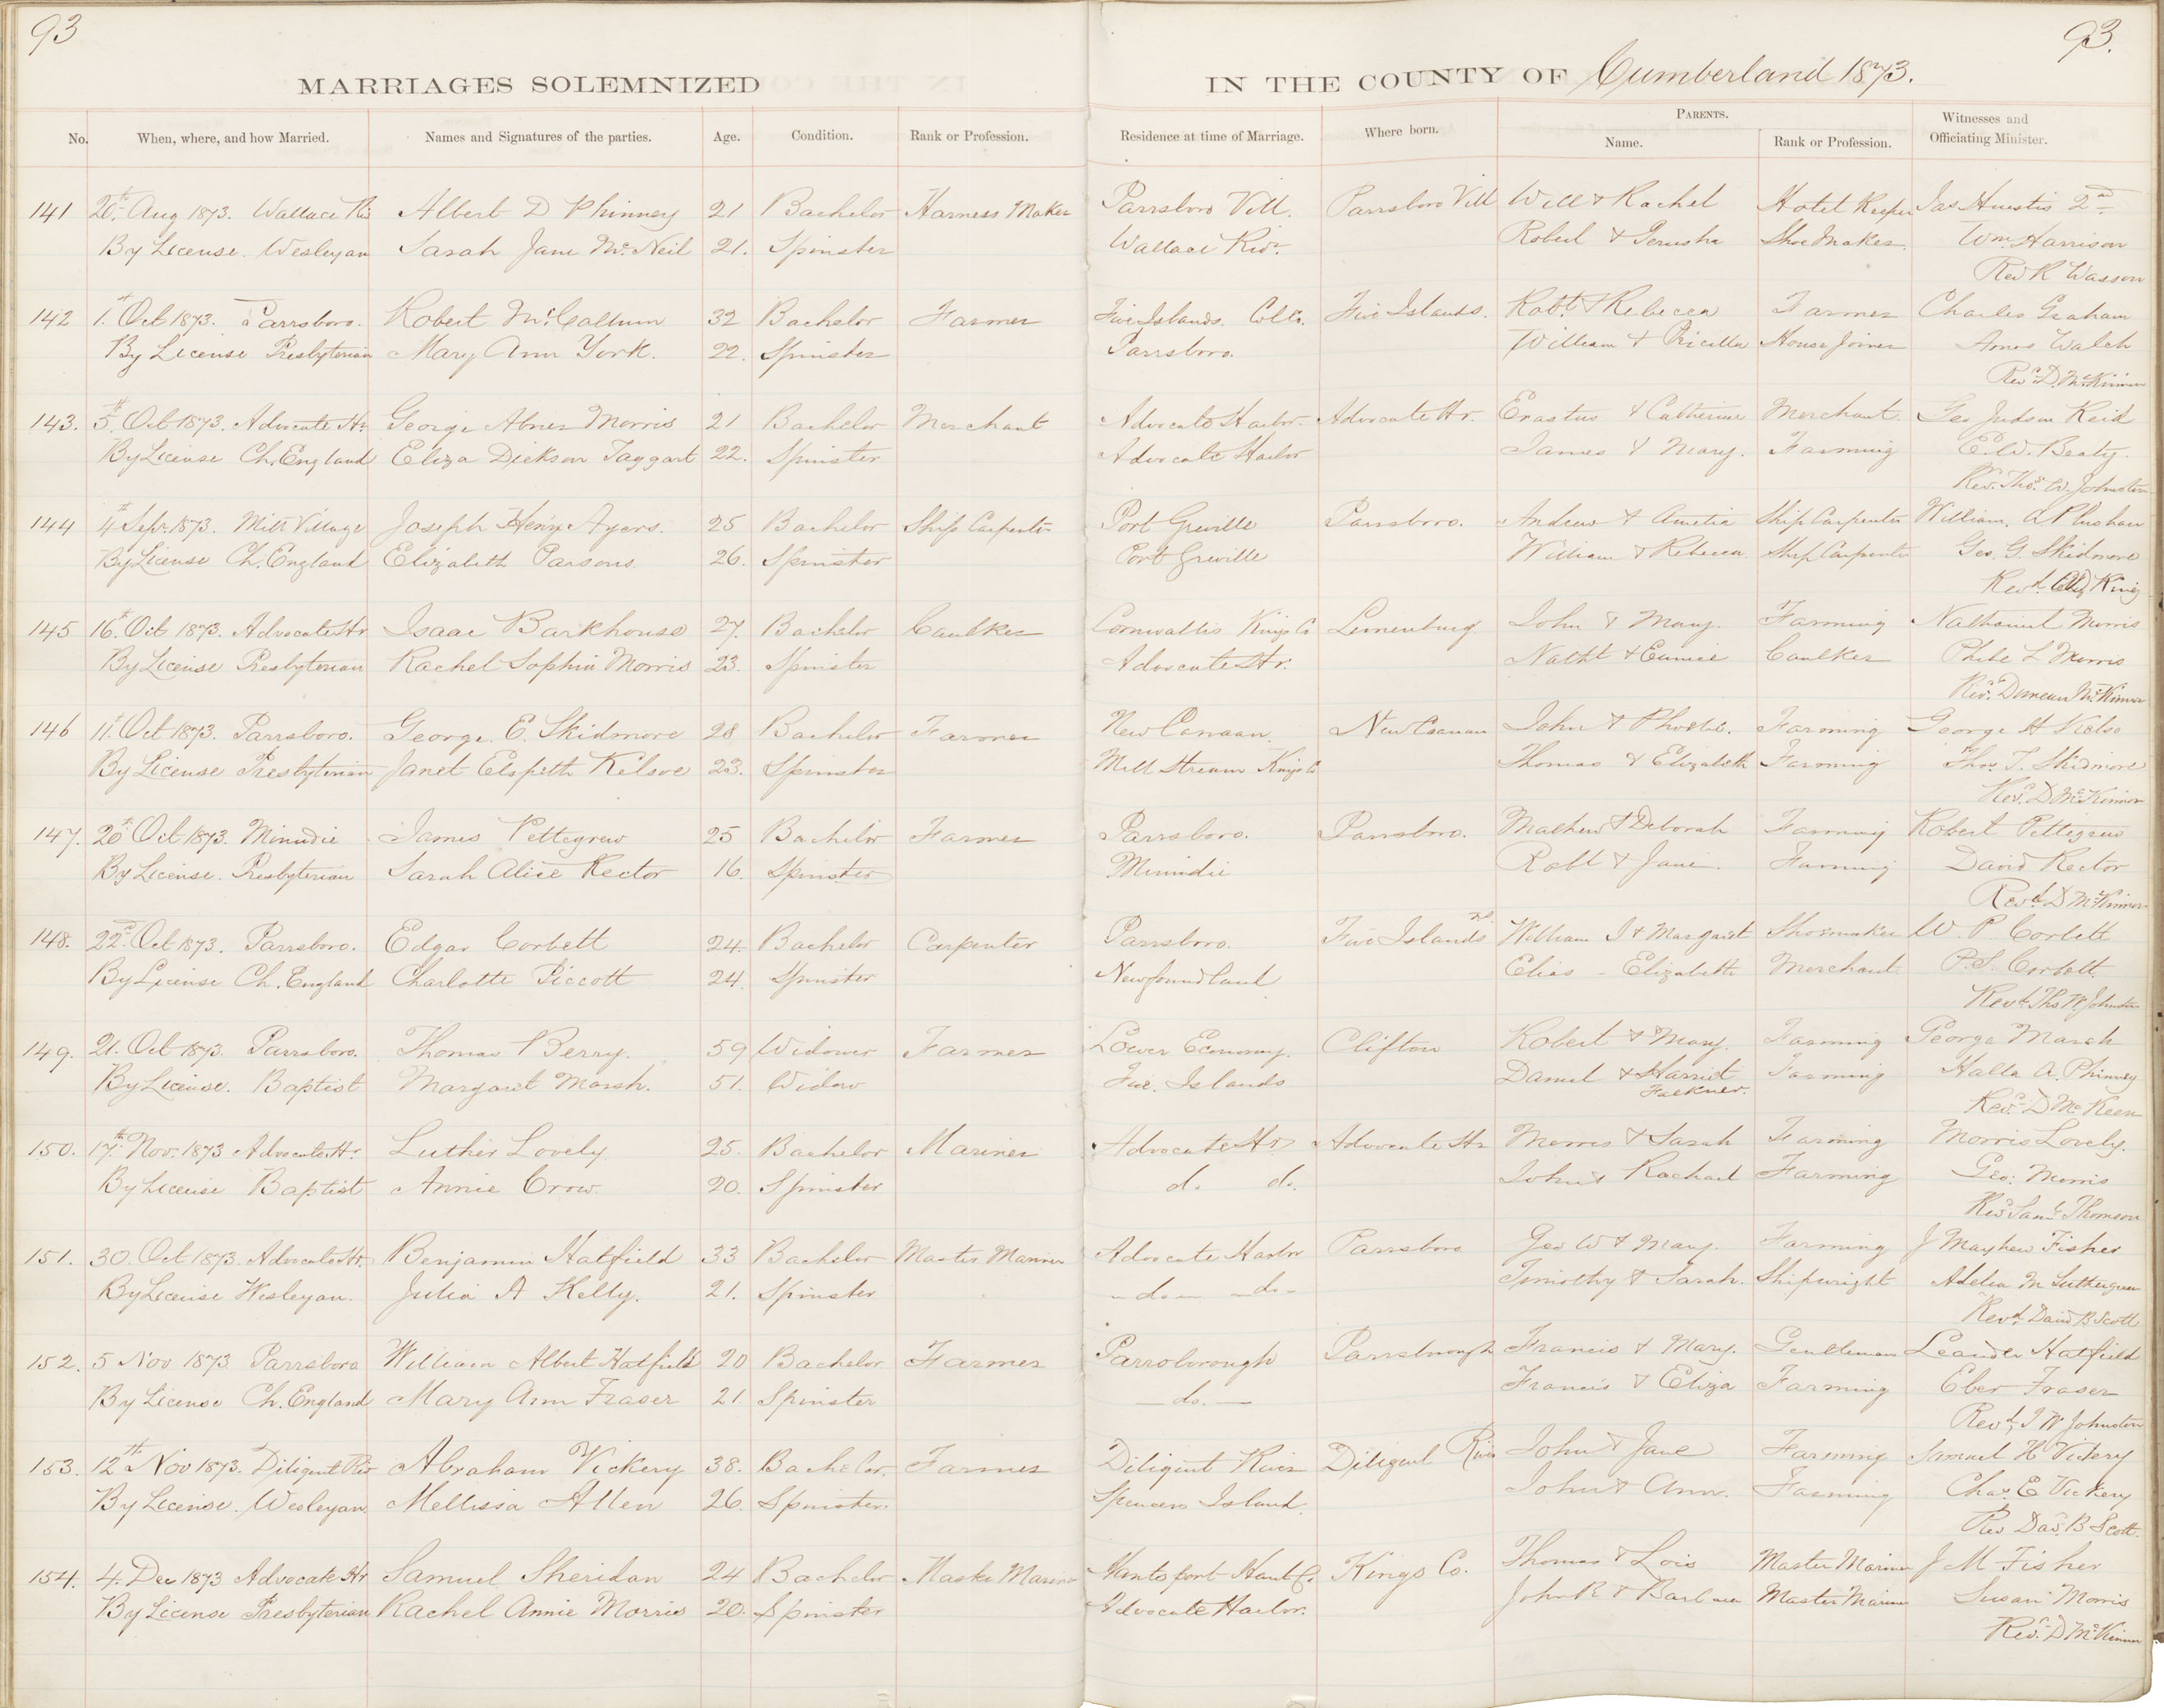 93
93.
MARRIAGES SOLEMNIZED IN THE COUNTY OF Cumberland 1873.
No. When, where, and how Married. Names and Signatures of the parties. Age. Condition. Rank or Profession. Residence at time of Marriage. Where born. PARENTS. Name. Rank or Profession. Witnesses and Officiating Minister.
141 20th Aug 1873. Wallace Riv Albert D Phinney 21 Bachelor Harness Maker Parrsboro Vill. Parrsboro Vill Will & Rachel Hotel Keeper Jas Huestis 2nd
By License. Wesleyan Sarah Jane McNeil 21. Spinster Wallace Rivr. Robert & Jerusha Shoe Maker. Wm Harrison
Rev R Wasson
142 1st Oct 1873. Parrsboro. Robert McCallum 32 Bachelor Farmer Five Islands. Colr. Five Islands. Robt. & Rebecca Farmer Charles Graham
By License Presbyterian Mary Ann York. 22. Spinster Parrsboro. William & Pricilla House Joiner Amos Walsh
Revd. D. McKinnon
143. 5th Oct 1873. Advocate Hr. George Abner Morris 21 Bachelor Merchant Advocate Harbor Advocate Hr. Erastus & Catherine Merchant. Geo Judson Reid
By License Ch. England Eliza Dickson Taggart 22. Spinster Advocate Harbor James & Mary. Farming E.W. Beaty.
Rev. Thos. W. Johnston
144 4th Sepr. 1873. Mill Village Joseph Henry Ayers. 25 Bachelor Ship Carpenter Port Greville Parrsboro. Andrew & Amelia Ship Carpenter William.
By License Ch. England Elizabeth Parsons 26. Spinster Port Greville William & Rebecca Ship Carpenter Geo. G. Skidmore
Revd. King
145 16th. Oct 1873. Advocate Hr Isaac Barkhouse 27. Bachelor Caulker Cornwallis Kings Co Lunenburg John & Mary. Farming Nathaniel Morris
By License Presbyterian Rachel Sophia Morris 23. Spinster Advocate Hr. Nathl & Eunice Caulker Phebe L Morris
Revd. Duncan McKinnon
146 11th Oct 1873. Parrsboro. George. E. Skidmore 28 Bachelor Farmer New Canaan. New Canaan John & Phoebe. Farming George H Kelso
By License Presbyterian Janet Elspeth Kelsoe 23. Spinster Mill Stream Kings Co Thomas & Elizabeth Farming Thos. T. Skidmore
Revd. D McKinnon
147. 20th Oct 1873. Minudie James Pettegrew 25 Bachelor Farmer Parrsboro. Parrsboro. Mathew & Deborah Farming Robert Pettigrew
By License. Presbyterian Sarah Alice Rector 16. Spinster Minudie Robt & Jane. Farming David Rector
Revd. D McKinnon
148. 22nd. Oct 1873. Parrsboro. Edgar Corbett 24. Bachelor Carpenter Parrsboro. Five Islands William J & Margaret Shoemaker W. P. Corbett
By License Ch. England Charlotte Piccott 24. Spinster Newfoundland Elias - Elizabeth Merchant P.S. Corbett.
Revd. Ths W Johnston
149. 21. Oct 1873. Parrsboro. Thomas Berry. 59 Widower Farmer Lower Economy. Clifton Robert & Mary. Farming George Marsh
By License. Baptist Margaret Marsh. 51. Widow Five. Islands Daniel & Harriet Faulkner. Farming Halla A. Phinney
Revd. D McKeen
150. 17th. Nov. 1873 Advocate Hr. Luther Lovely 25. Bachelor Mariner Advocate Hr Advocate Hr Morris & Sarah Farming Morris Lovely.
By License Baptist Annie Crow. 20. Spinster do. do. John & Rachael Farming Geo: Morris
Revd. Saml Thomson
151. 30. Oct 1873. Advocate Hr. Benjamin Hatfield 33 Bachelor Master Mariner Advocate Harbor Parrsboro Geo W & Mary. Farming J Mayhew Fisher
By License Wesleyan. Julia A Kelly. 21. Spinster - do - - do - Timothy & Sarah. Shipwright Adelia M
Revd. David B Scott
152. 5 Nov 1873. Parrsboro William Albert Hatfield 20 Bachelor Farmer Parrsborough Parrsborough Francis & Mary. Gentleman Leander Hatfield
By License Ch. England Mary Ann Fraser 21. Spinster - do. - Francis & Eliza Farming Eber Fraser
Revd. T W Johnston
153. 12th Nov 1873. Diligent Riv Abraham Vickery 38. Bachelor. Farmer Diligent River Diligent River John & Jane Farming Samuel H Vickery
By License. Wesleyan. Mellissa Allen 26. Spinster. Spencers Island. John & Ann. Farming Chas. E Vickery
Rev Davd. B Scott.
154. 4. Dec 1873 Advocate Hr Samuel Sheridan 24 Bachelor Master Mariner Hantsport Hants Co. Kings Co. Thomas & Lois Master Mariner J M Fisher
By License Presbyterian Rachel Annie Morris 20. Spinster Advocate Harbor. John R & Barbara Master Mariner Susan Morris
Revd. D McKinnon